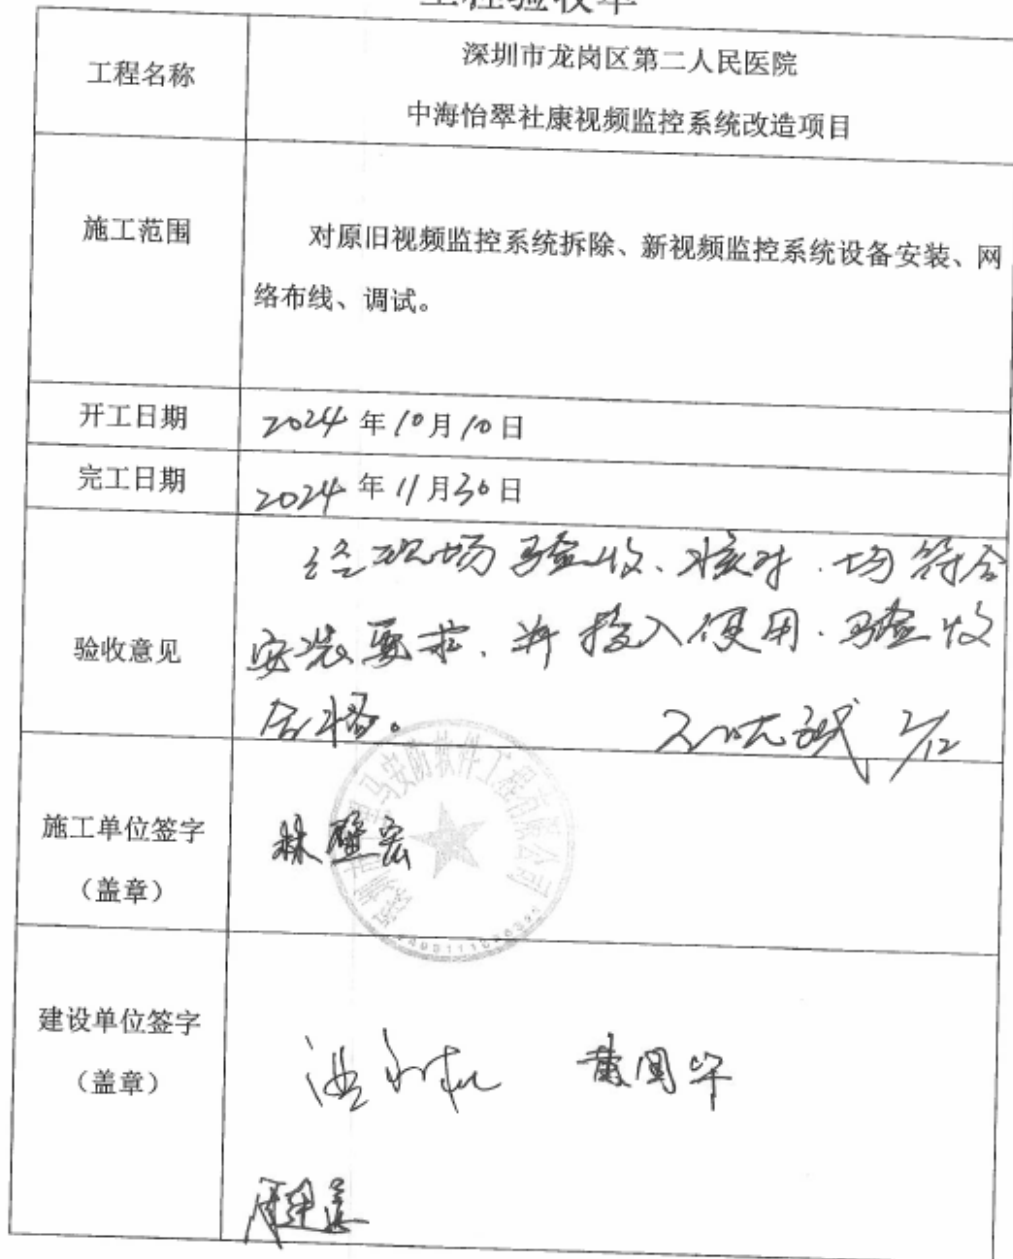 工程验收单
工程名称
深圳市龙岗区第二人民医院
中海怡翠社康视频监控系统改造项目
施工范围
对原旧视频监控系统拆除、新视频监控系统设备安装、网
络布线、调试。
开工日期
2024年10月10日
完工日期
2024年11月30日
验收意见
经现场验收、核对.均符合
安装要求、并投入使用.验收
合格。
2/12
施工单位签字
(盖章)
林
建设单位签字
(盖章)
黄国华